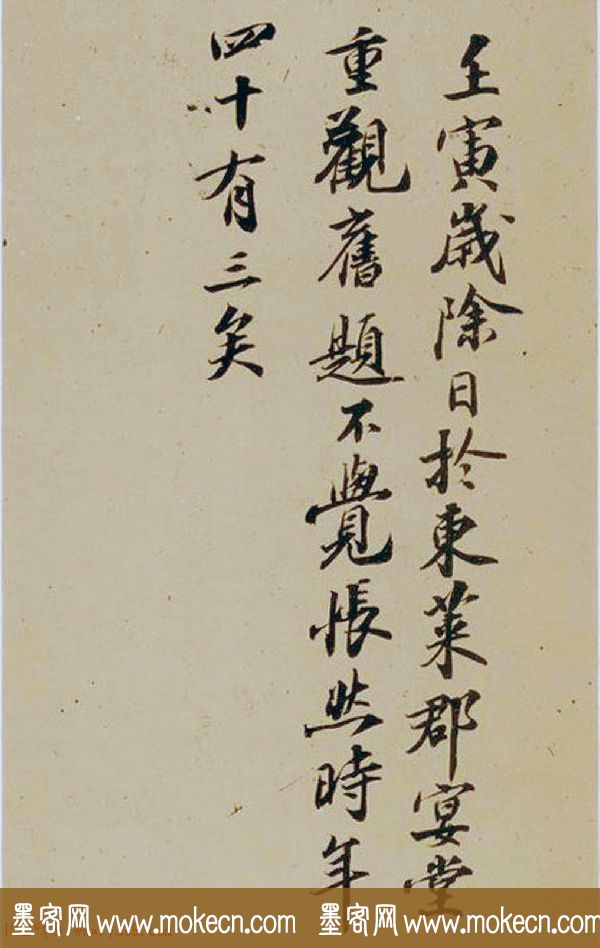 壬寅歲除日於東萊郡宴堂
重觀舊題不覺悵然時年
四十有三矣
墨客网 www.mokecn.com 墨客网 www.mokecn.com